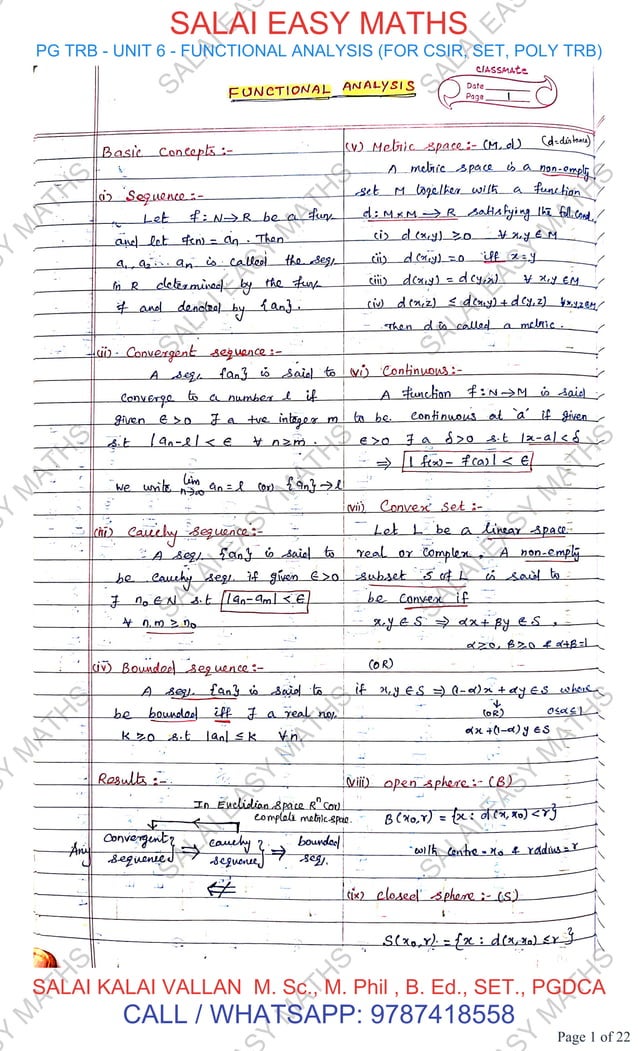 SALAI EASY MATHS
PG TRB - UNIT 6 - FUNCTIONAL ANALYSIS (FOR CSIR, SET, POLY TRB)
classmate
Date
Page 1
FUNCTIONAL ANALYSIS
Basic Concepts :-
(i) Sequence :-
Let f: N→R be a fun
and let f(n) = an. Then
a1, a2 ... an is called the seq.
in R determined by the fun
f and denoted by {an}.
(ii) Convergent sequence :-
A seq. {an} is said to
converge to a number l if
given ϵ>0 ∃ a +ve integer m
s.t |an-l| < ϵ ∀ n≥m.
we write lim n→∞ an = l (or) {an}→l
(iii) Cauchy sequence :-
A seq. {an} is said to
be cauchy seq. if given ϵ>0
∃ n0 ∈ N s.t |an-am| < ϵ
∀ n,m ≥ n0
(iv) Bounded sequence :-
A seq. {an} is said to
be bounded iff ∃ a real no.
k≥0 s.t |an| ≤ k ∀n.
Results :-
In Euclidian space R^n (or)
complete metric space.
Any convergent sequence ⇒ cauchy sequence ⇒ bounded seq.
⇍
(v) Metric space :- (M,d) (d=distance)
A metric space is a non-empty
set M together with a function
d: M×M → R satisfying the foll. cond.
(i) d(x,y) ≥0 ∀ x,y∈M
(ii) d(x,y)=0 iff x=y
(iii) d(x,y) = d(y,x) ∀ x,y∈M
(iv) d(x,z) ≤ d(x,y)+d(y,z) ∀x,y,z∈M
Then d is called a metric.
(vi) Continuous :-
A function f: N→M is said
to be continuous at 'a' if given
ϵ>0 ∃ a δ>0 s.t |x-a|<δ
⇒ |f(x)-f(a)| < ϵ
(vii) Convex set :-
Let L be a linear space
real or complex. A non-empty
subset S of L is said to
be convex if
x,y∈S ⇒ αx+βy∈S,
α≥0, β≥0 & α+β=1
(OR)
if x,y∈S ⇒ (1-α)x+αy∈S where
↓ (OR) 0≤α≤1
αx+(1-α)y∈S
(viii) open sphere :- (B)
B(x0,r) = {x : d(x,x0) <r}
with centre = x0 & radius = r
(ix) closed sphere :- (S)
S(x0,r) = {x : d(x,x0) ≤r}
SALAI KALAI VALLAN M. Sc., M. Phil , B. Ed., SET., PGDCA
CALL / WHATSAPP: 9787418558
Page 1 of 22
SALAI EASY MATHS